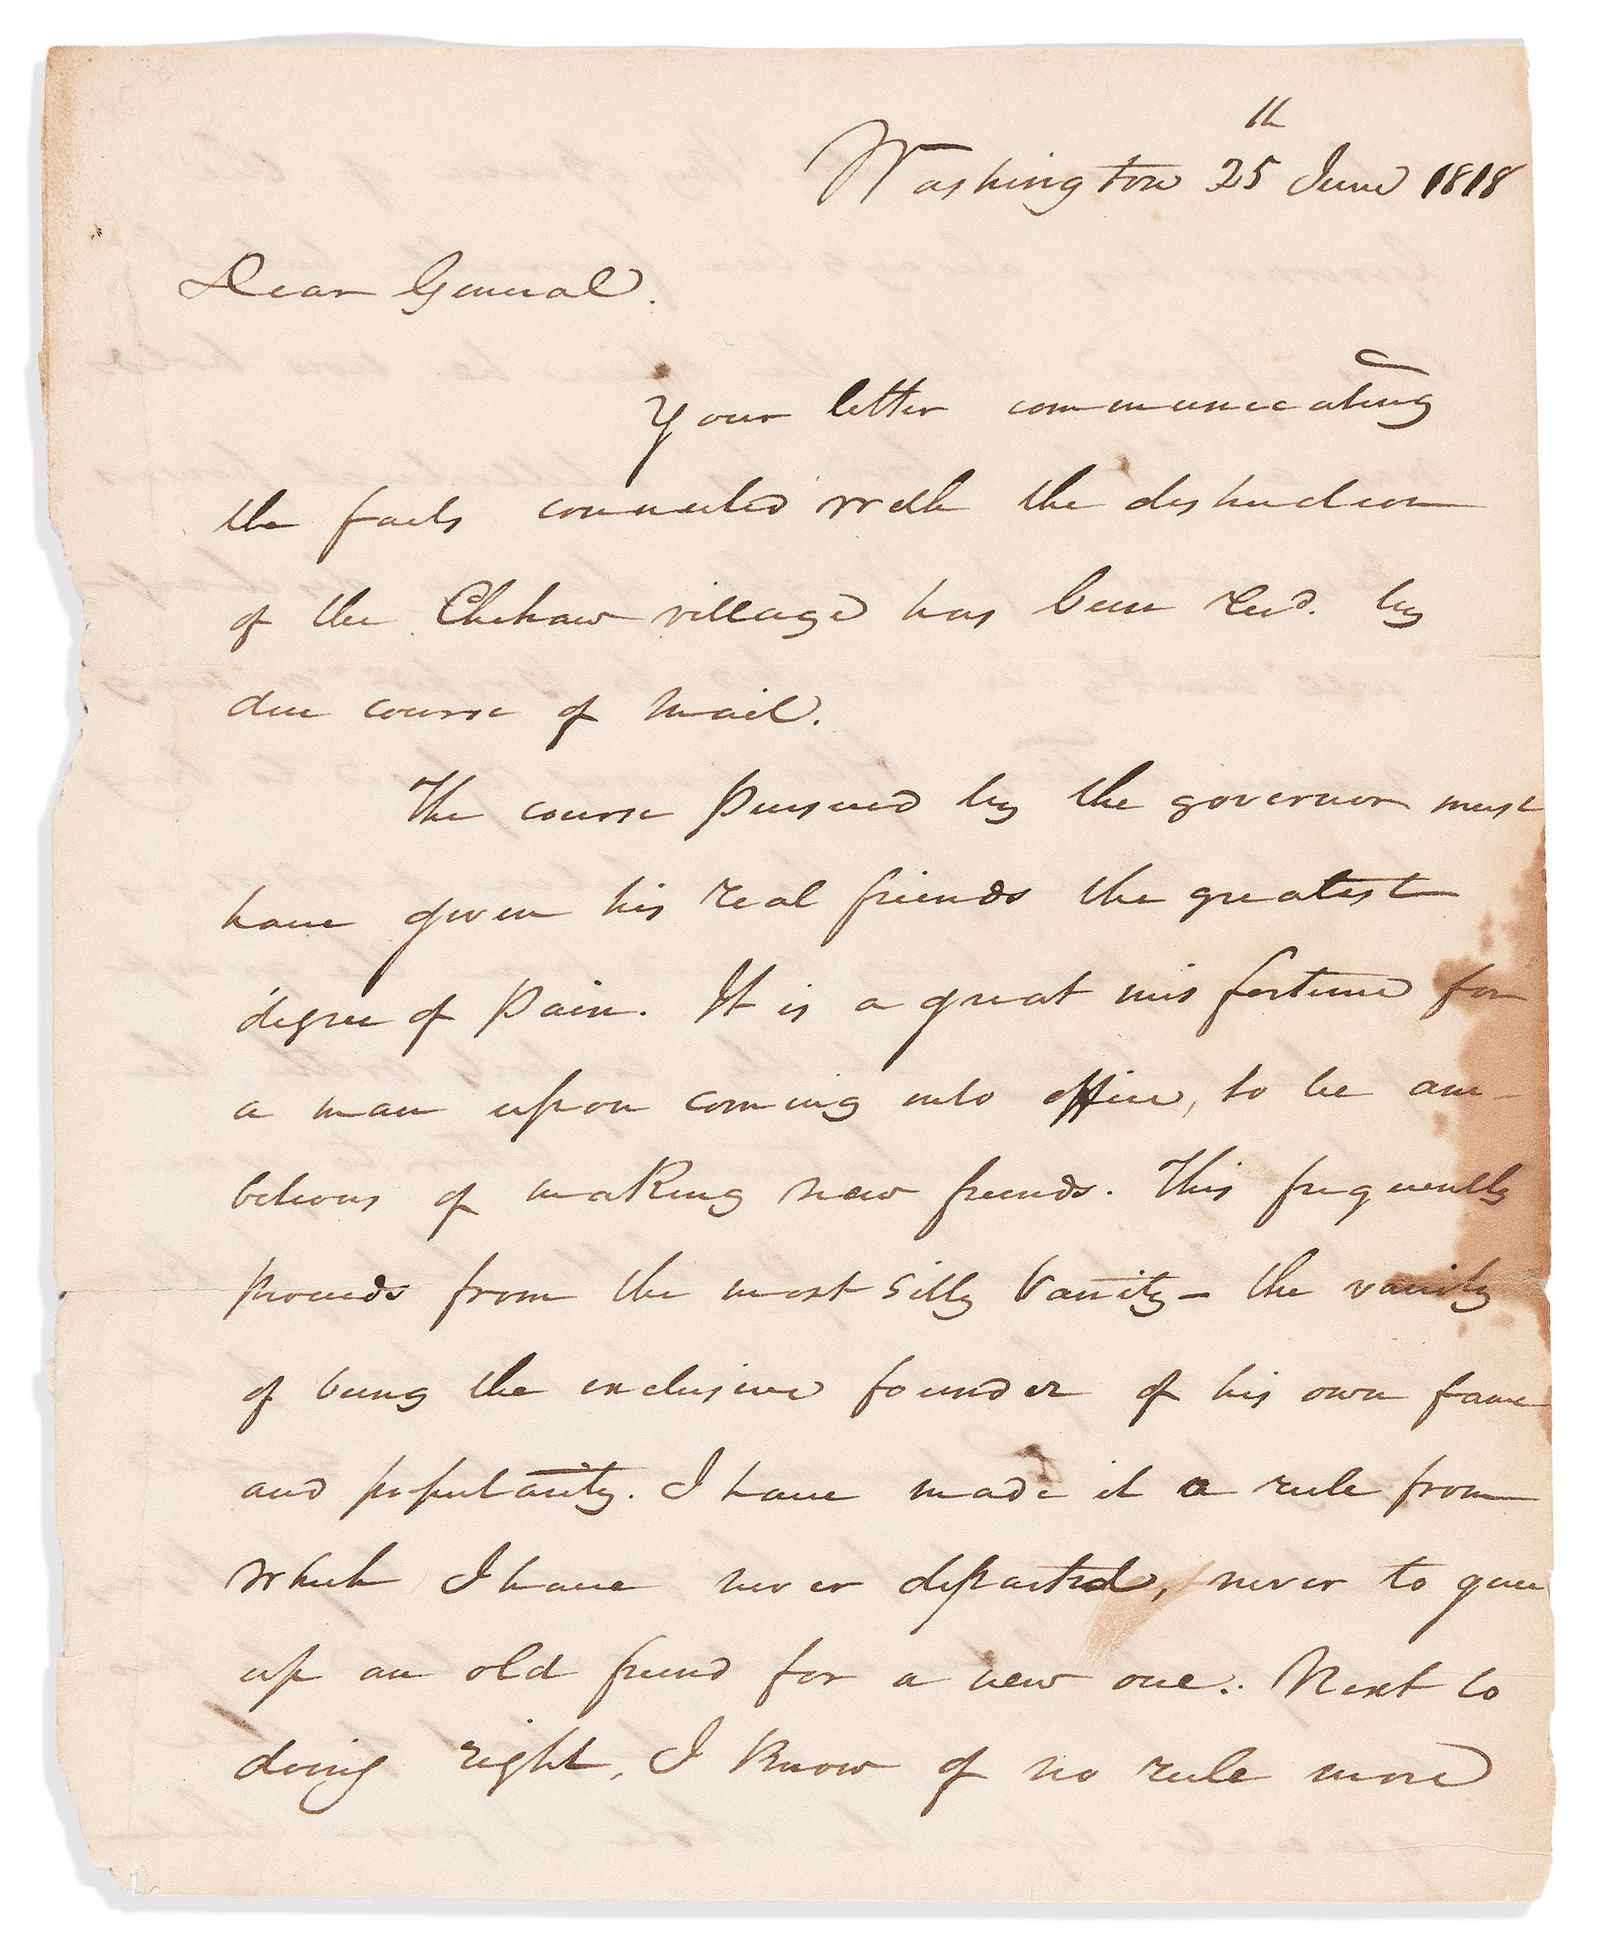 Washington 25th June 1818
Dear General.
Your letter communicating
the facts connected with the destruction
of the Chehaw village has been recd. by
due course of mail.
The course pursued by the governor must
have given his real friends the greatest
degree of pain. It is a great misfortune for
a man upon coming into office, to be am-
bitious of making new friends. This frequently
proceeds from the most silly vanity – the vanity
of being the exclusive founder of his own fame
and popularity. I have made it a rule from
which I have never departed, never to give
up an old friend for a new one. Next to
doing right, I know of no rule more